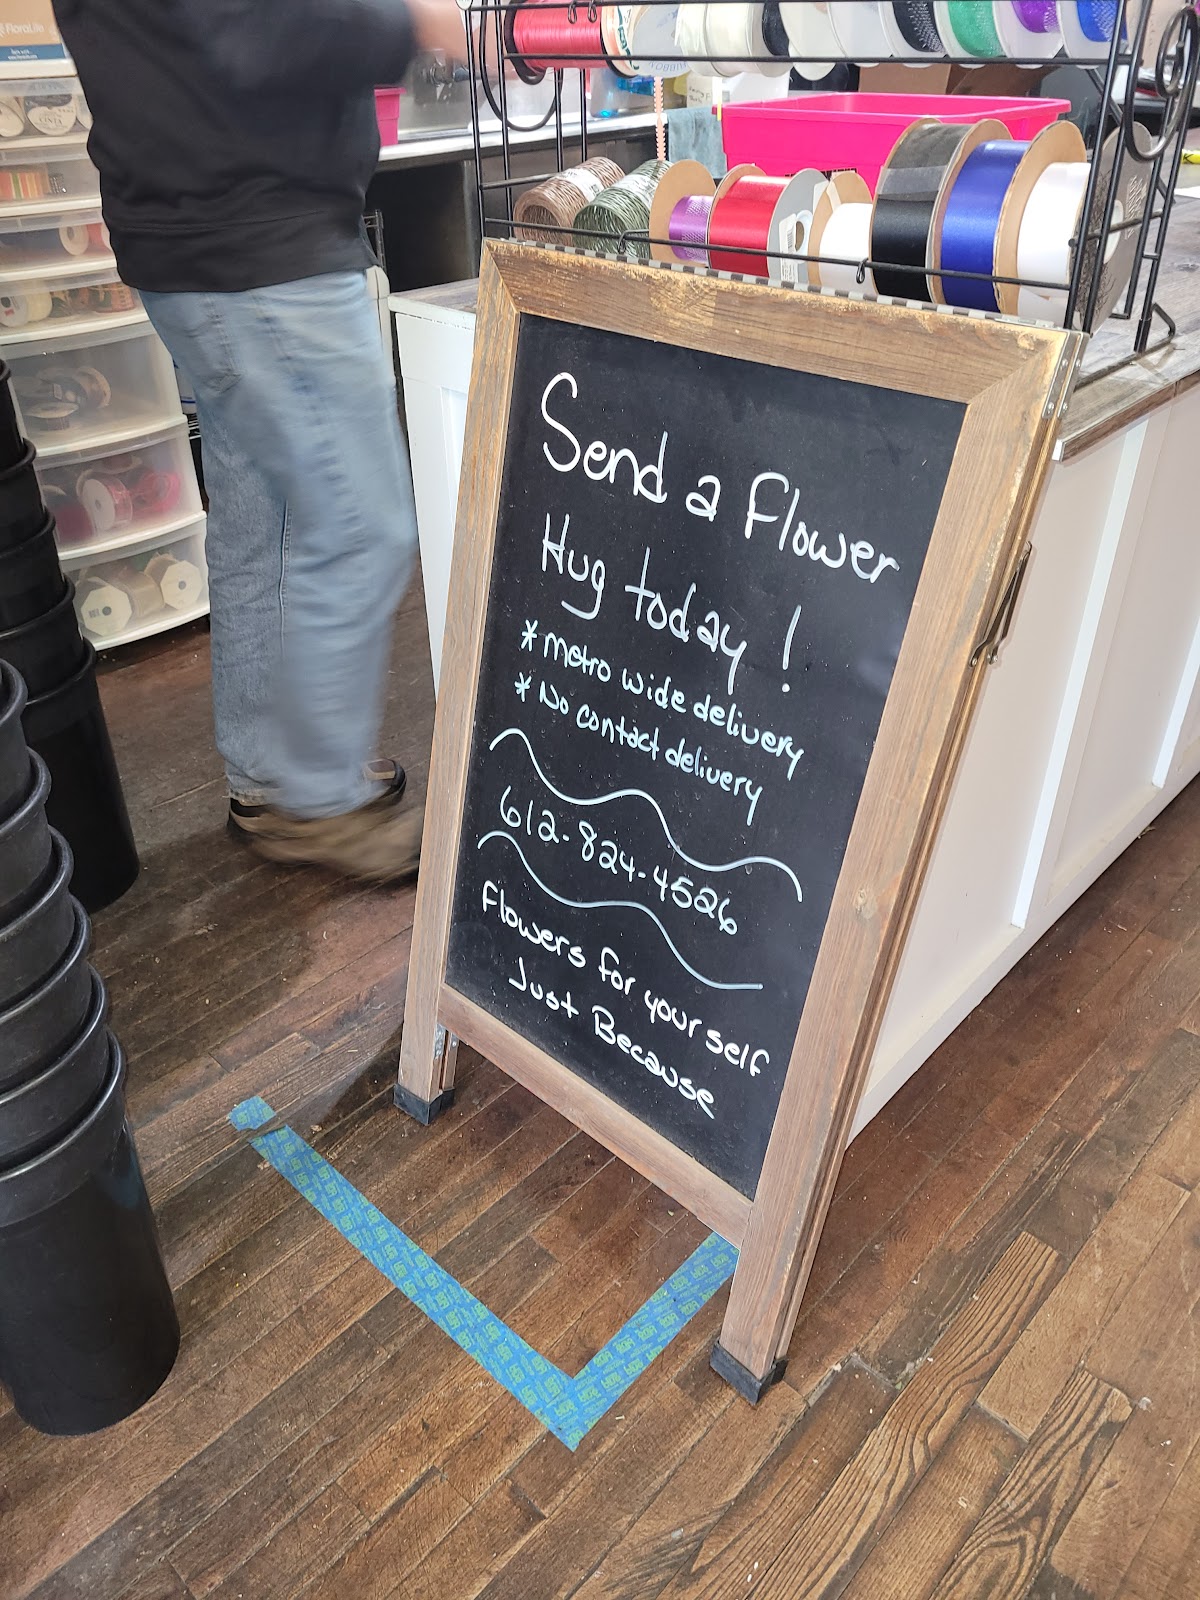 FloraLife
Send a Flower
Hug today!
* metro wide delivery
* No contact delivery
612-824-4526
Flowers for yourself
Just Because